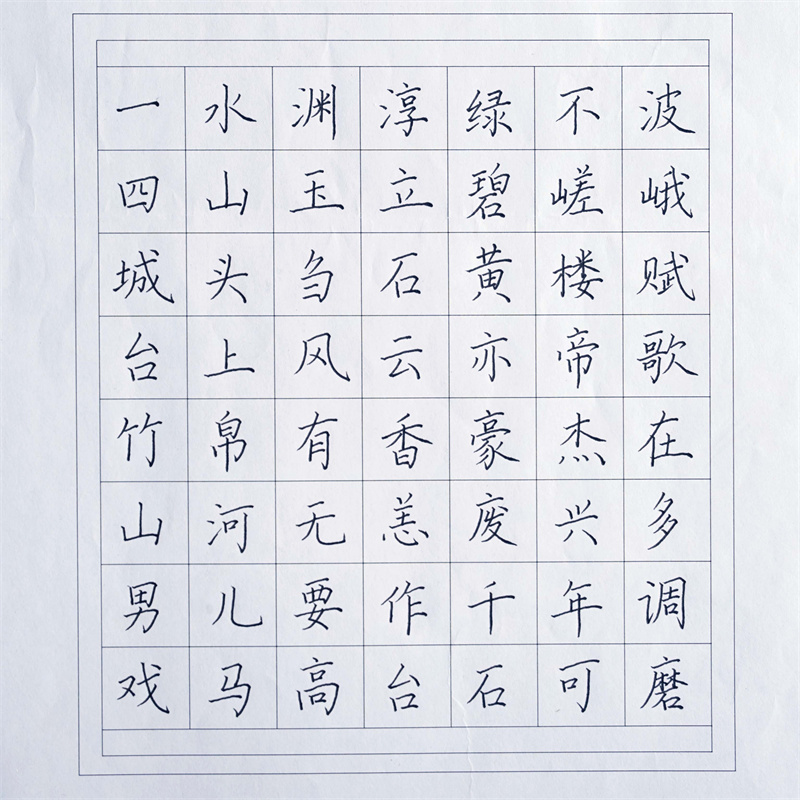 一水渊淳绿不波
四山玉立碧嵯峨
城头刍石黄楼赋
台上风云亦帝歌
竹帛有香豪杰在
山河无恙废兴多
男儿要作千年调
戏马高台石可磨